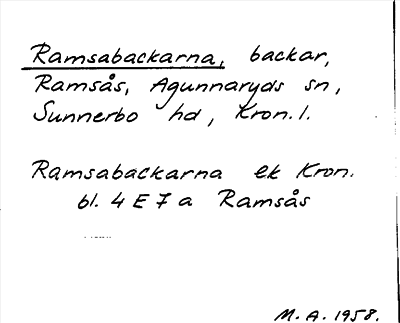 Ramsabackarna, backar,
Ramsås, Agunnaryds sn,
Sunnerbo hd, Kron. l.
Ramsabackarna ek Kron.
bl. 4 E 7 a Ramsås
M. A. 1958.